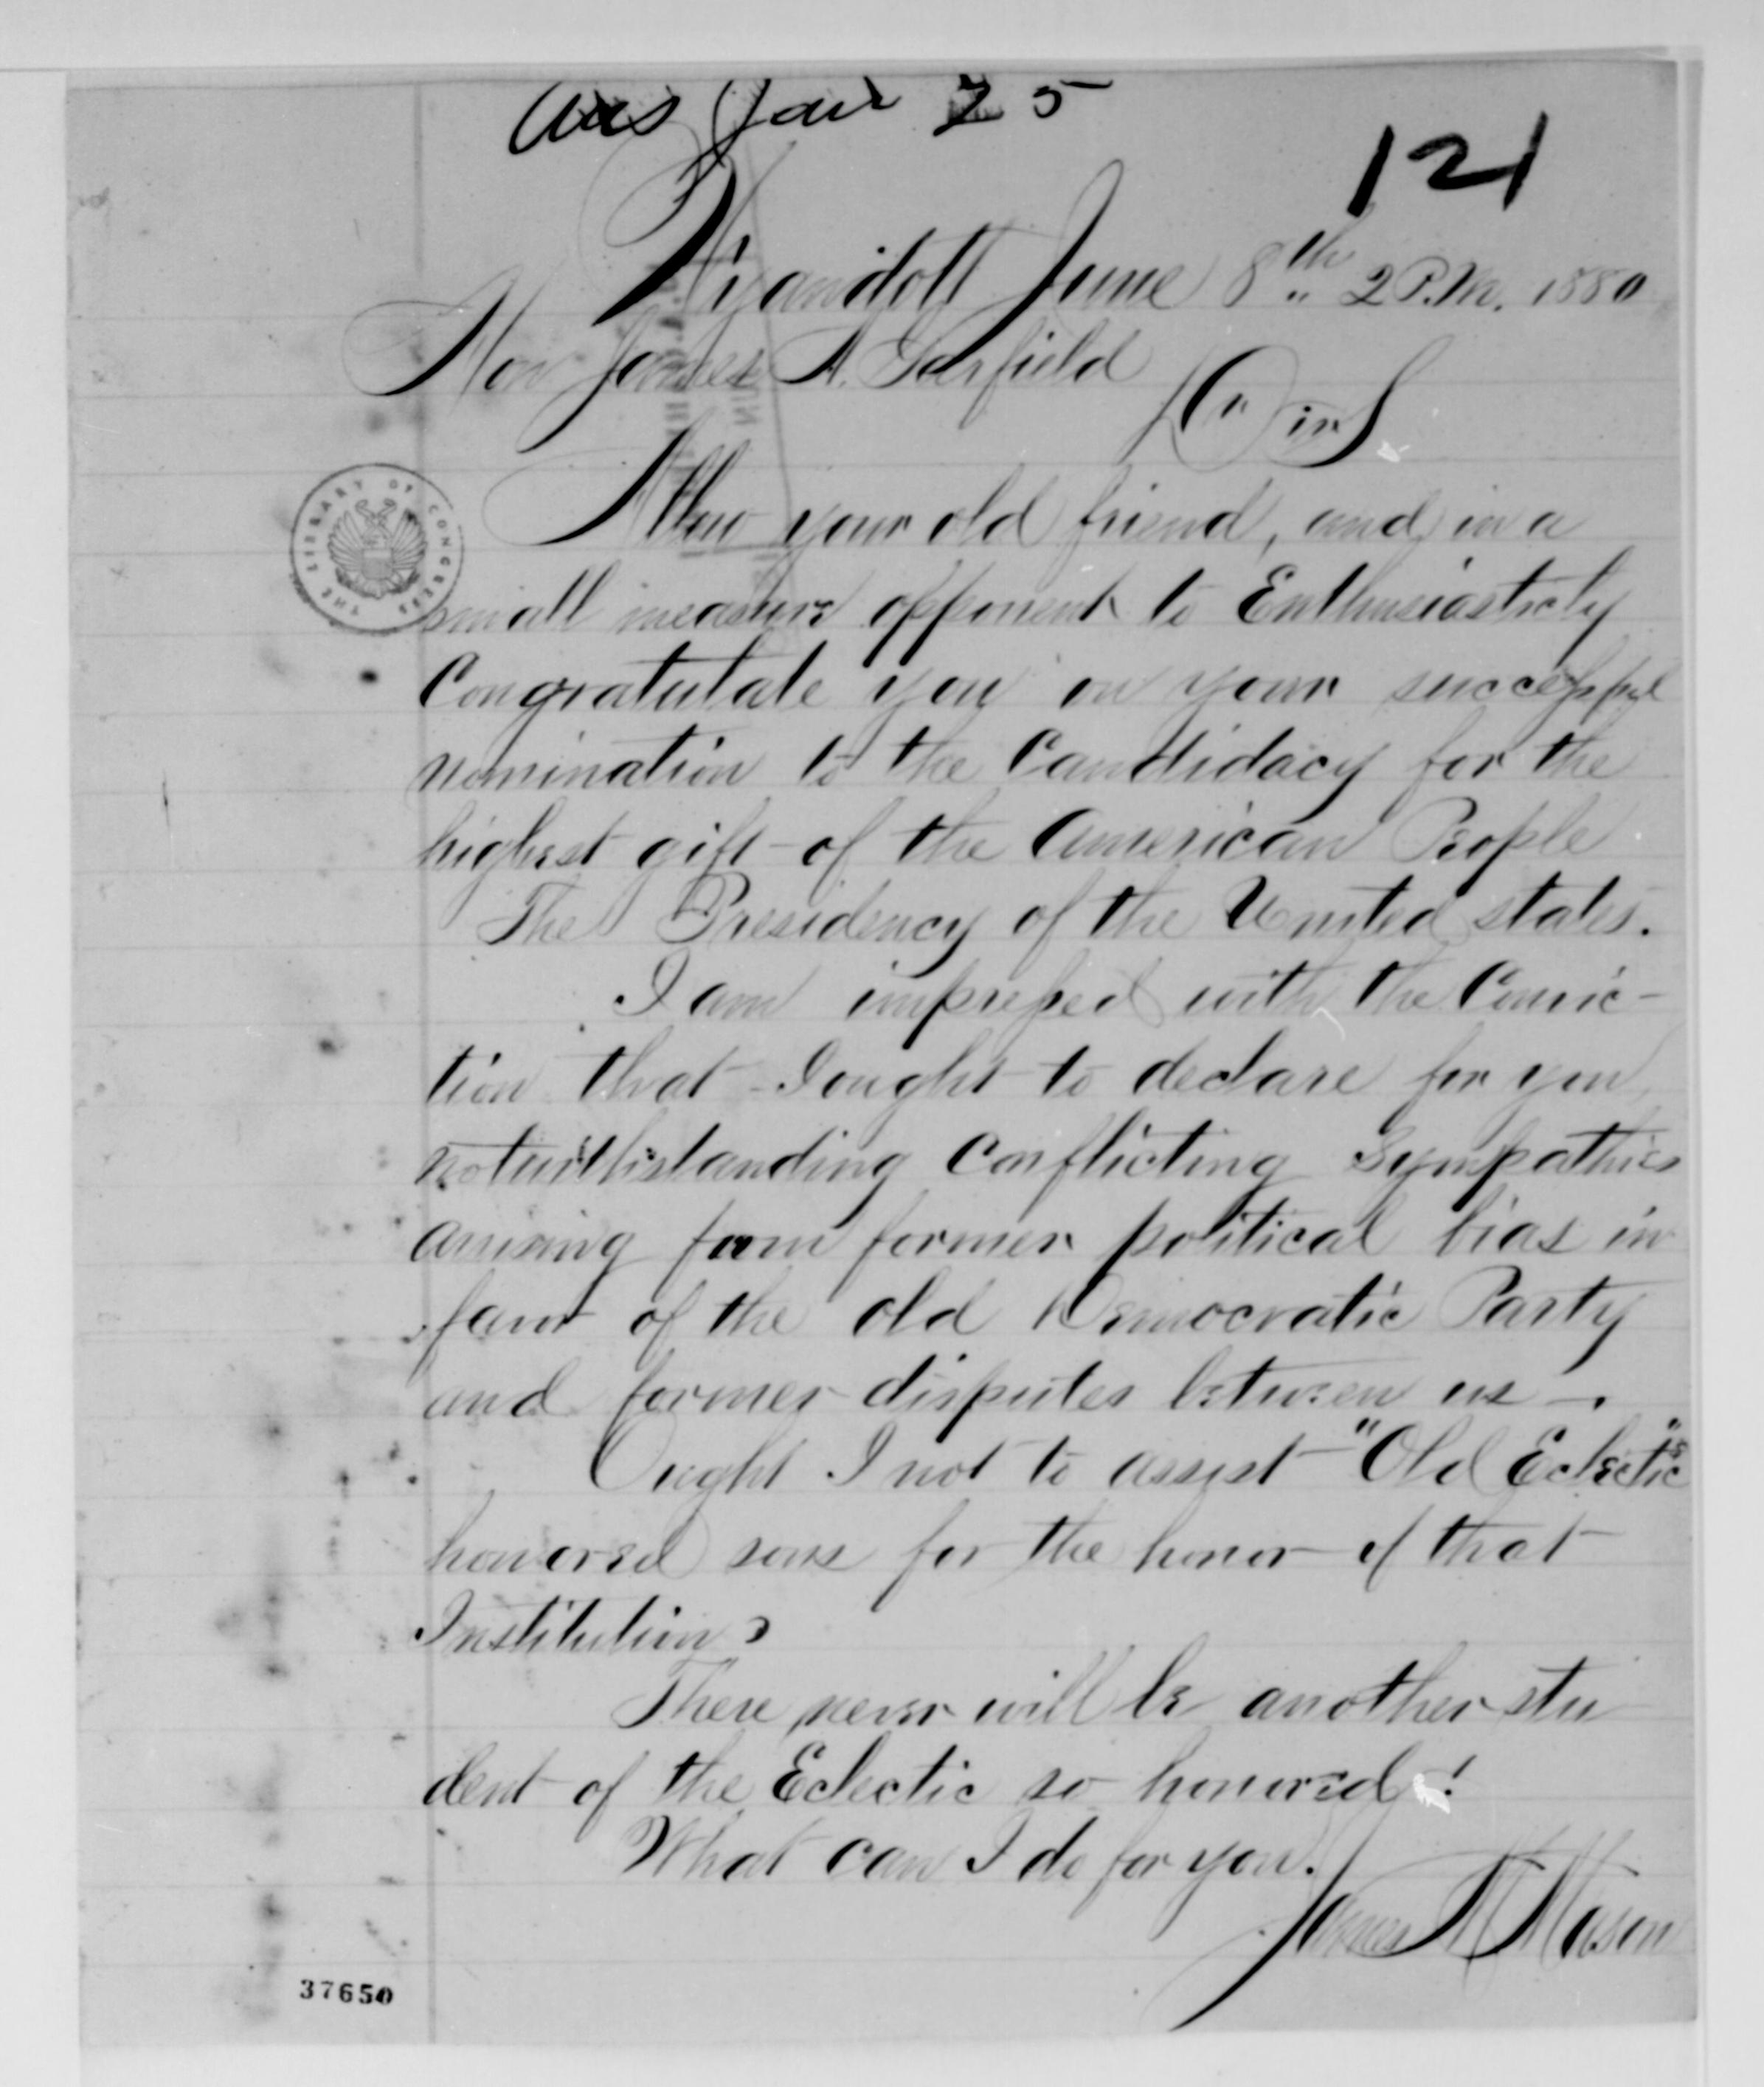 Ans Jan 25
121
Wyandott June 8th 2 P.M. 1880
Hon James A. Garfield
Dr Sir
Allow your old friend, and in a
small measure opponent to Enthusiasticly
Congratulate you on your successful
nomination to the Candidacy for the
highest gift of the American People
The Presidency of the United states.
I am impressed with the Convic-
tion that I ought to declare for you
notwithstanding Conflicting sympathies
arrising from former political bias in
favor of the old Democratic Party
and former disputes between us —.
Ought I not to assist "Old Eclectic"s
honored sons for the honor of that
Institution?
There never will be another stu
dent of the Eclectic so honored!
What can I do for you.
James Mason
THE LIBRARY OF CONGRESS
37650